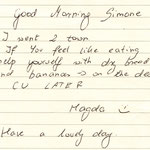 Good Morning Simone
I went 2 town
If You feel like eating
help yourself with dry bread
and bananas is on the desk
CU LATER
Magda
Have a lovely day.